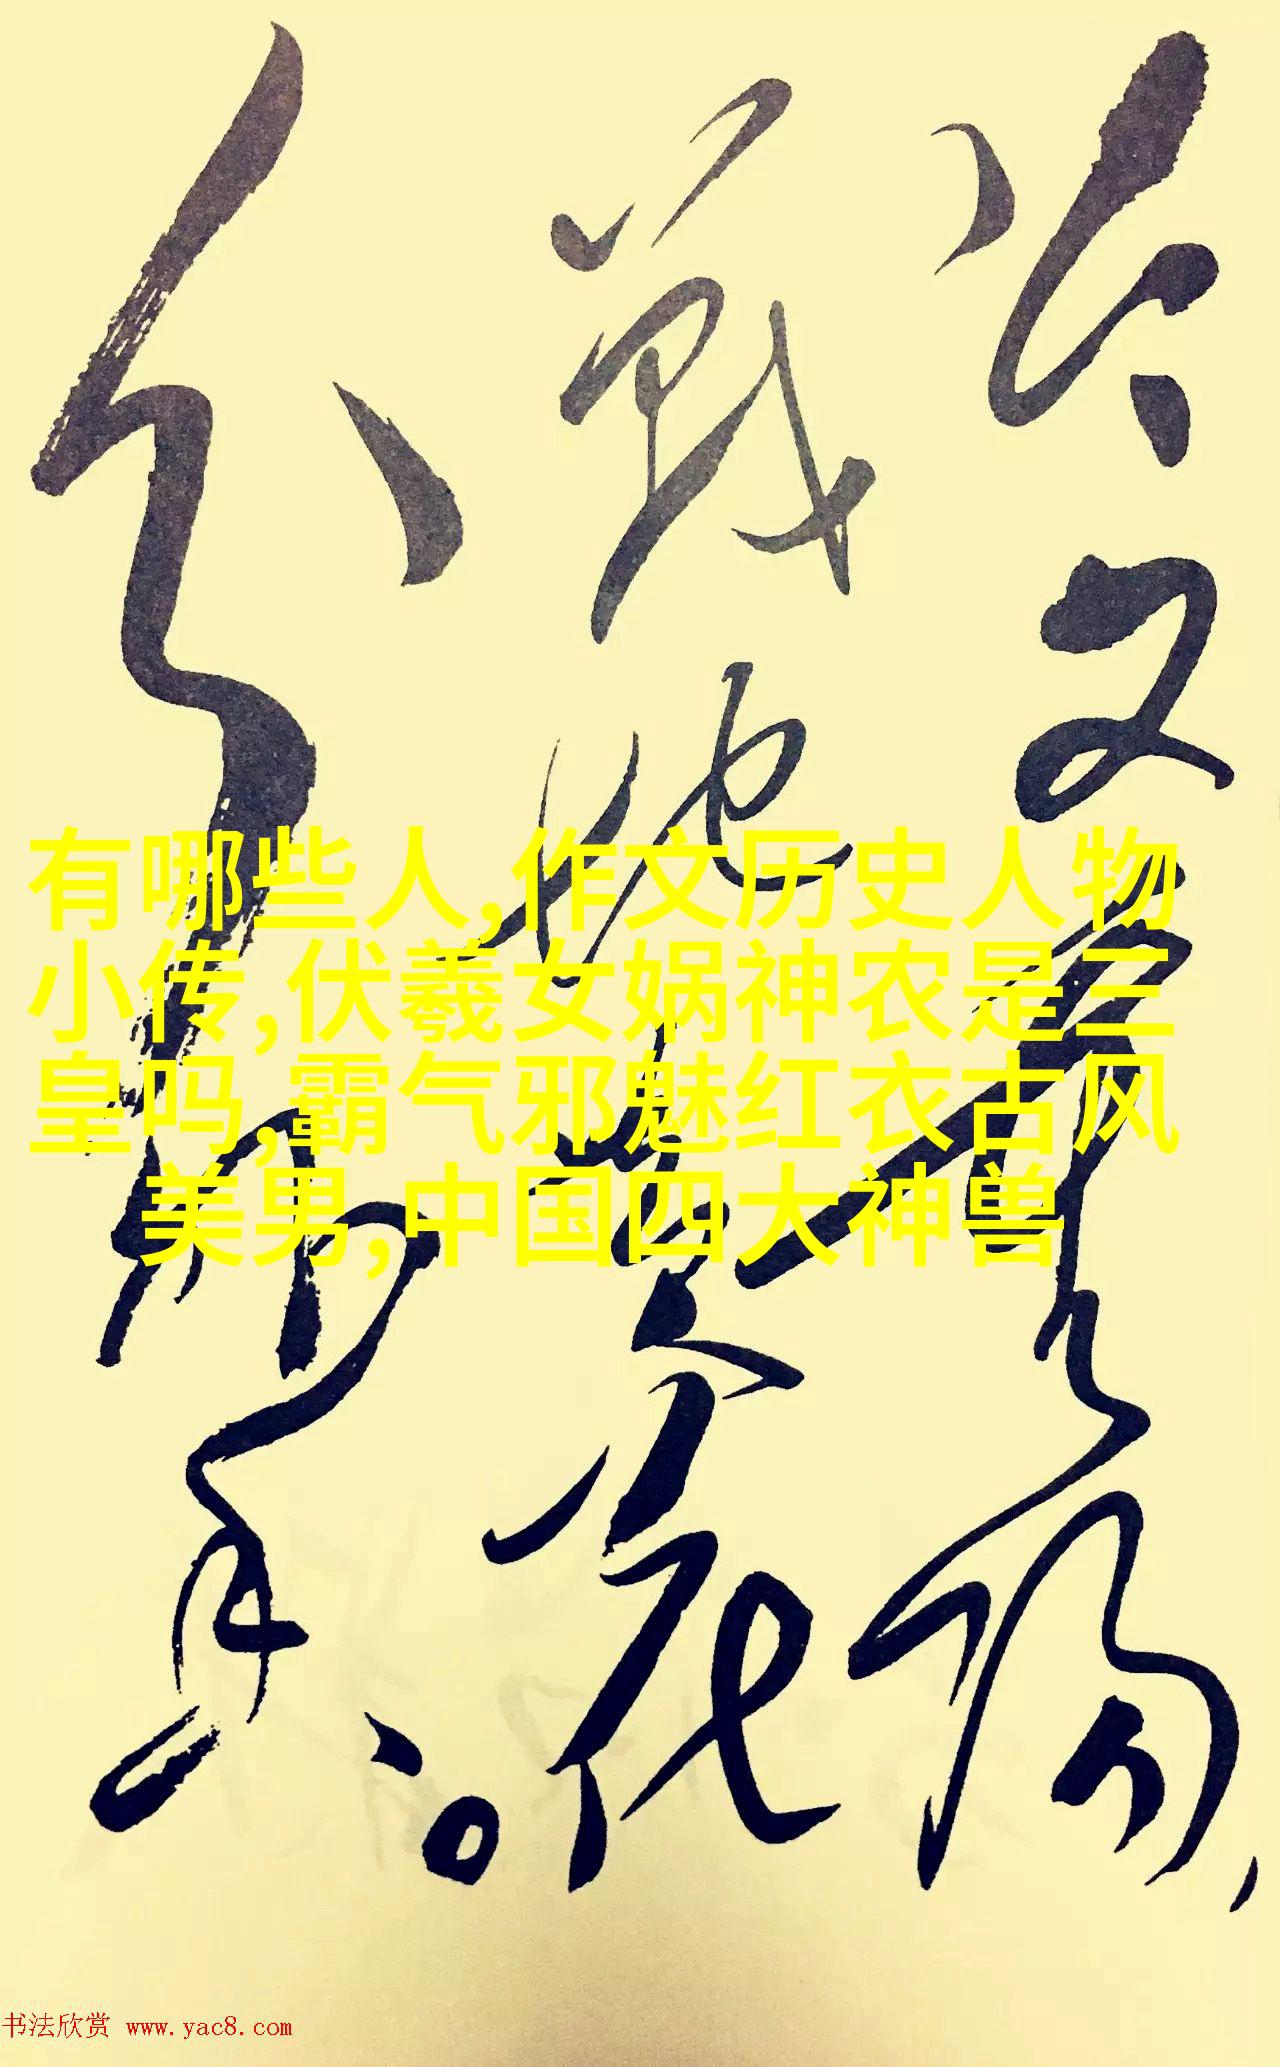 今又重陽,
戰地黃花
分外香。
有哪些人,作文历史人物
小传,伏羲女娲神农是三
皇吗,霸气邪魅红衣古风
美男,中国四大神兽
书法欣赏 www.yac8.com